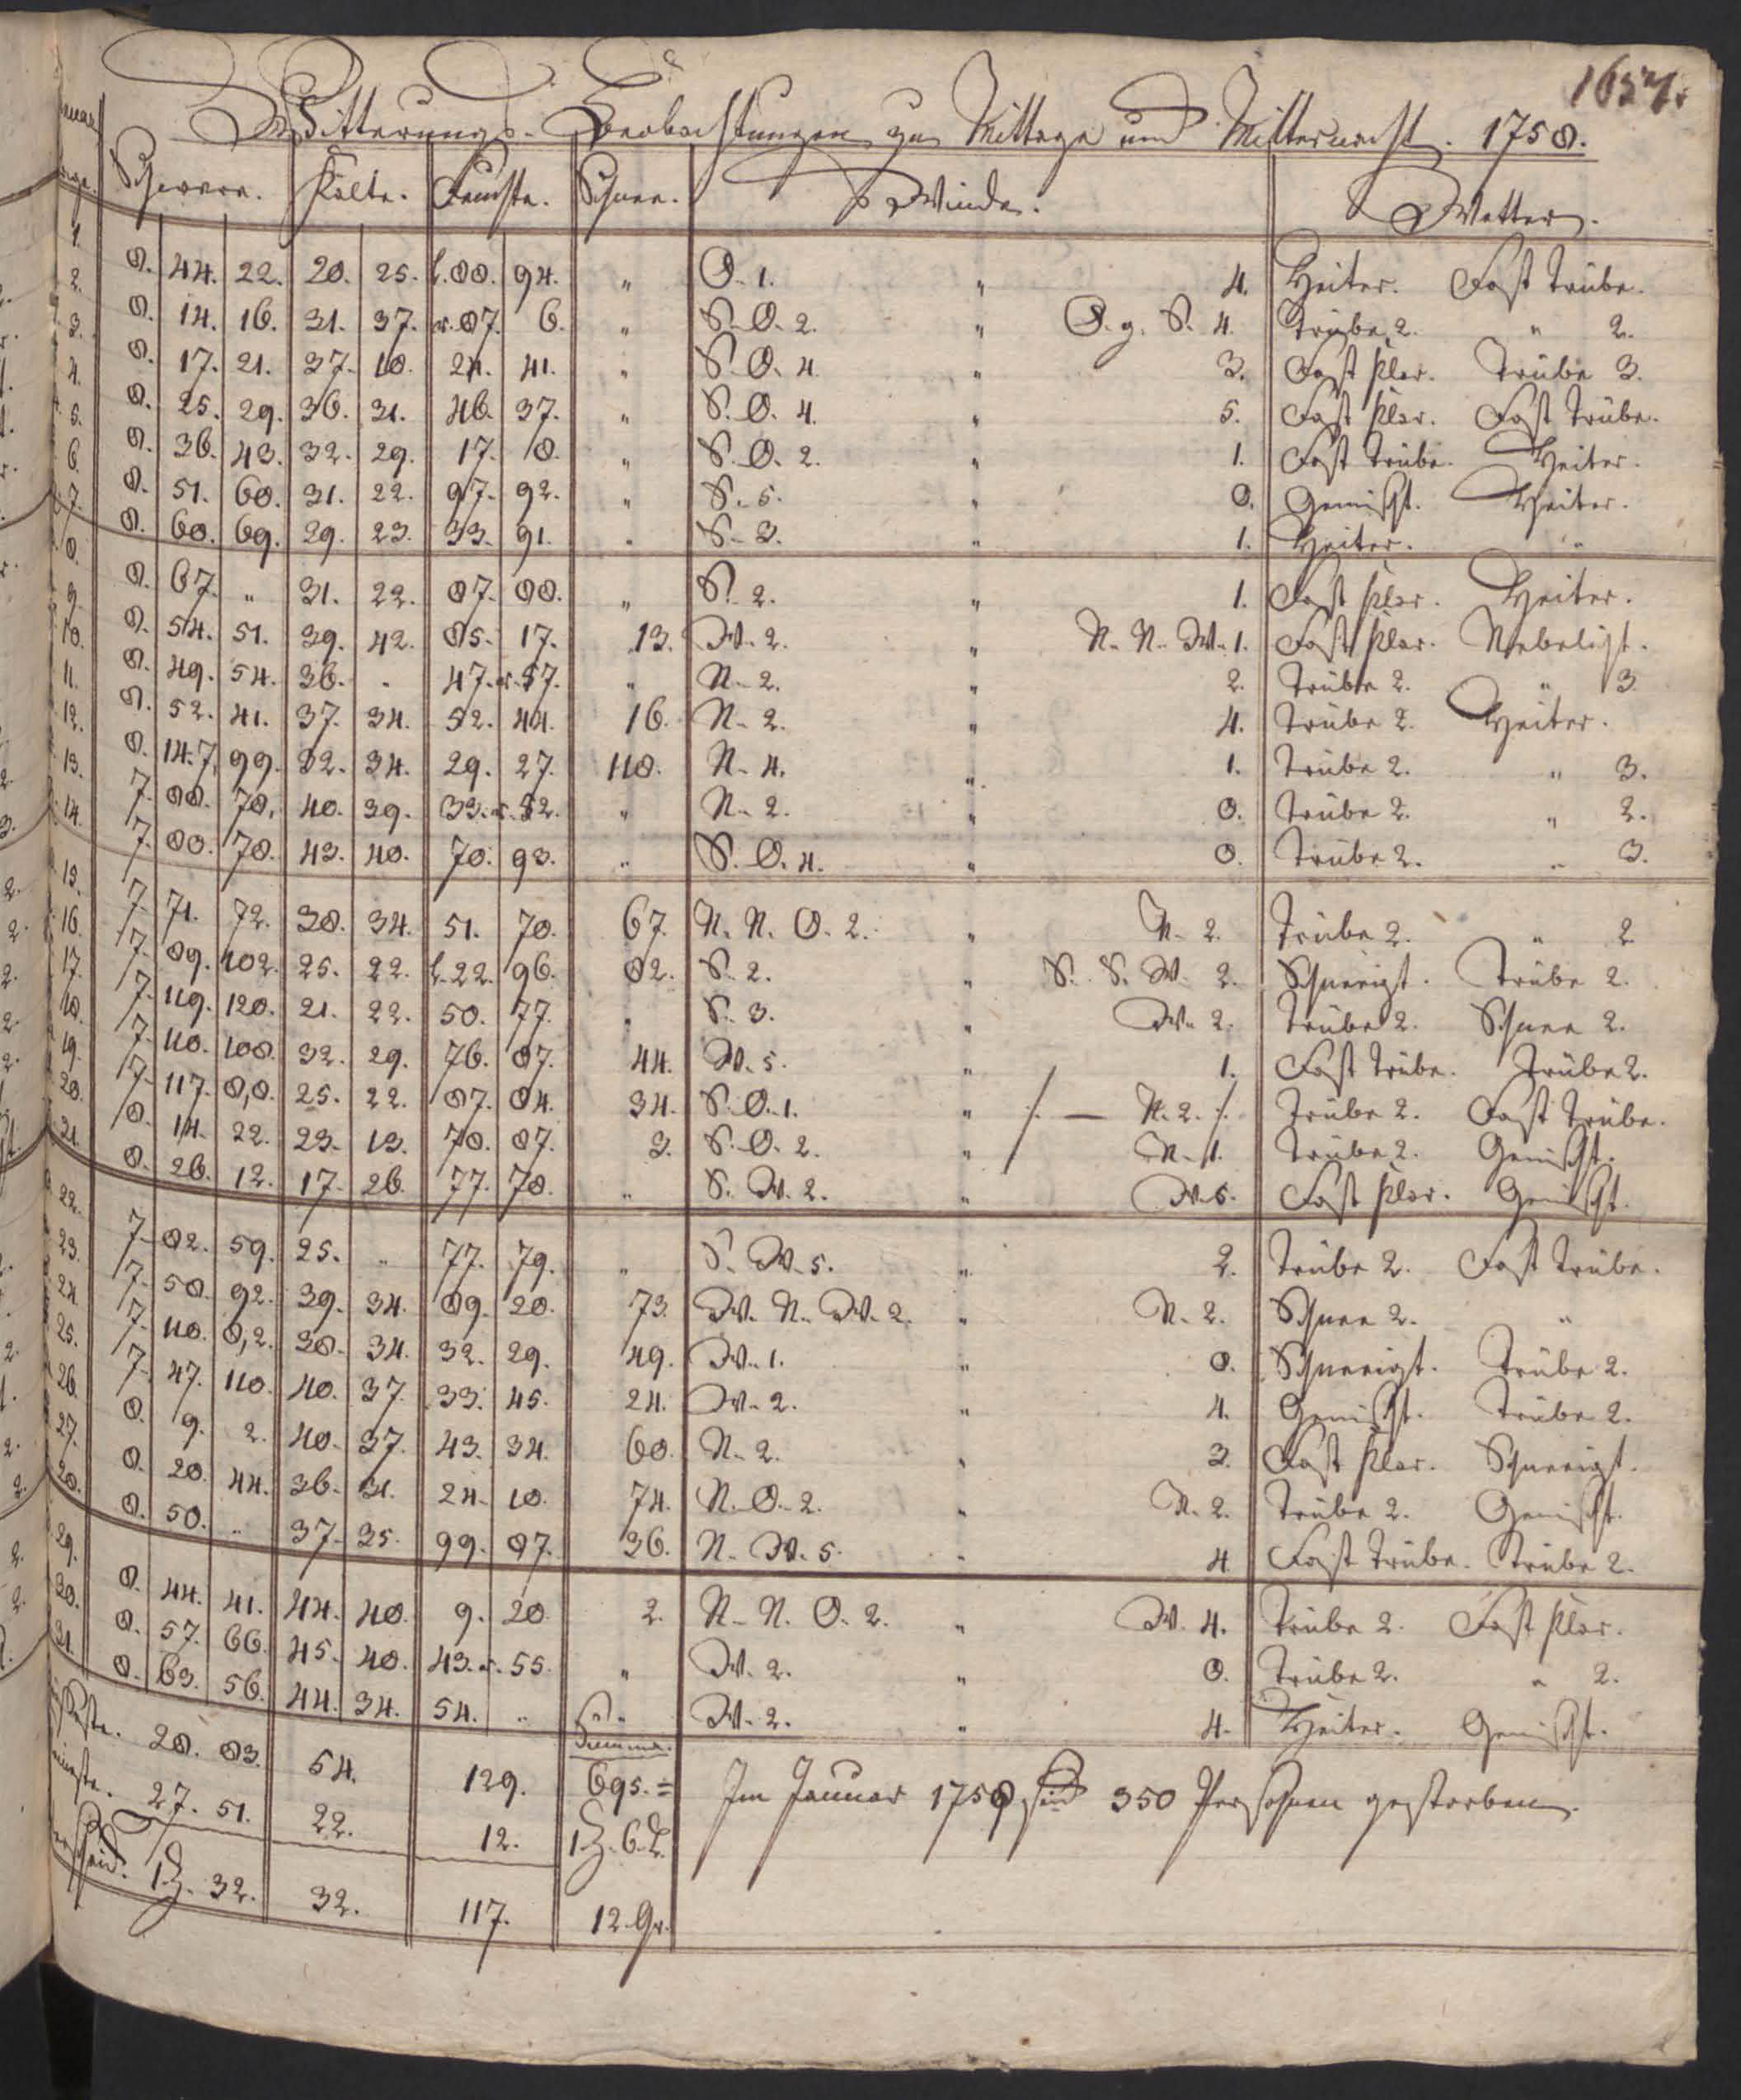 1657.
Witterungs-Beobachtungen zu Mittage und Mitternacht. 1758.
Schwere. Kälte. Feuchte. Schnee. Winde. Wetter.
1. 8. 44. 22. 28. 25. l. 88. 94. " O. 1. " 4. Heiter. Fast trübe.
2. 8. 14. 16. 31. 37. r. 87. 6. " S. O. 2. " O. g. S. 4. Trübe 2. " 2.
3. 8. 17. 21. 37. 18. 24. 41. " S. O. 4. " 3. Fast klar. Trübe 3.
4. 8. 25. 29. 36. 31. 46. 37. " S. O. 4. " 5. Fast klar. Fast trübe.
5. 8. 36. 43. 32. 29. 17. 8. " S. O. 2. " 1. Fast trübe. Heiter.
6. 8. 51. 60. 31. 22. 97. 92. " S. 5. " 0. Gemischt. Heiter.
7. 8. 68. 69. 29. 23. 33. 91. " S. 3. " 1. Heiter. "
8. 8. 67. " 31. 22. 87. 88. " S. 2. " 1. Fast klar. Heiter.
9. 8. 54. 51. 39. 42. 85. 17. 13. W. 2. " N. N. W. 1. Fast klar. Nebelicht.
10. 8. 49. 54. 36. " 47. r. 57. " N. 2. " 2. Trübe 2. " 3.
11. 8. 52. 41. 37. 34. 52. 44. 16. N. 2. " 4. Trübe 2. Heiter.
12. 8. 14. 7,99. 32. 34. 29. 27. 118. N. 4. " 1. Trübe 2. " 3.
13. 7. 88. 78. 40. 39. 33. r. 52. " N. 2. " 0. Trübe 2. " 2.
14. 7. 83. 78. 43. 40. 70. 93. " S. O. 4. " 0. Trübe 2. " 3.
15. 7. 71. 72. 38. 34. 51. 70. 67. N. N. O. 2. " N. 2. Trübe 2. " 2
16. 7. 89. 102. 25. 22. l. 22. 96. 82. S. 2. " S. S. W. 2. Schneeigt. Trübe 2.
17. 7. 119. 120. 21. 22. 50. 77. " S. 3. " W. 2. Trübe 2. Schnee 2.
18. 7. 118. 108. 32. 29. 76. 87. 44. W. 5. " 1. Fast trübe. Trübe 2.
19. 7. 117. 8,8. 25. 22. 87. 84. 34. S. O. 1. " N. 2. Trübe 2. Fast trübe.
20. 8. 14. 22. 23. 13. 78. 87. 3. S. O. 2. " N. 1. Trübe 2. Gemischt.
21. 8. 26. 12. 17. 26. 77. 78. " S. W. 2. " W. 5. Fast klar. Gemischt.
22. 7. 82. 59. 25. " 77. 79. " S. W. 5. " 2. Trübe 2. Fast trübe.
23. 7. 58. 92. 39. 34. 89. 20. 73. W. N. W. 2. " N. 2. Schnee 2. "
24. 7. 118. 8,2. 38. 34. 32. 29. 49. W. 1. " 0. Schneeigt. Trübe 2.
25. 7. 47. 110. 40. 37. 33. 45. 24. W. 2. " 4. Gemischt. Trübe 2.
26. 8. 9. 2. 40. 37. 43. 34. 60. N. 2. " 3. Fast klar. Schneeigt.
27. 8. 20. 44. 36. 31. 24. 18. 74. N. O. 2. " N. 2. Trübe 2. Gemischt.
28. 8. 50. " 37. 35. 99. 87. 36. N. W. 5. " 4 Fast trübe. Trübe 2.
29. 8. 44. 41. 44. 40. 9. 20 2. N. N. O. 2. " W. 4. Trübe 2. Fast klar.
30. 8. 57. 66. 45. 40. 43. r. 55. " W. 2. " 0. Trübe 2. " 2.
31. 8. 63. 56. 44. 34. 54. " " W. 2. " 4. Heiter. Gemischt.
Summa.
28. 83. 54. 129. 695. = Im Januar 1758 sind 350 Personen gestorben.
27. 51. 22. 12.
32. 32. 117. 12. Gr.